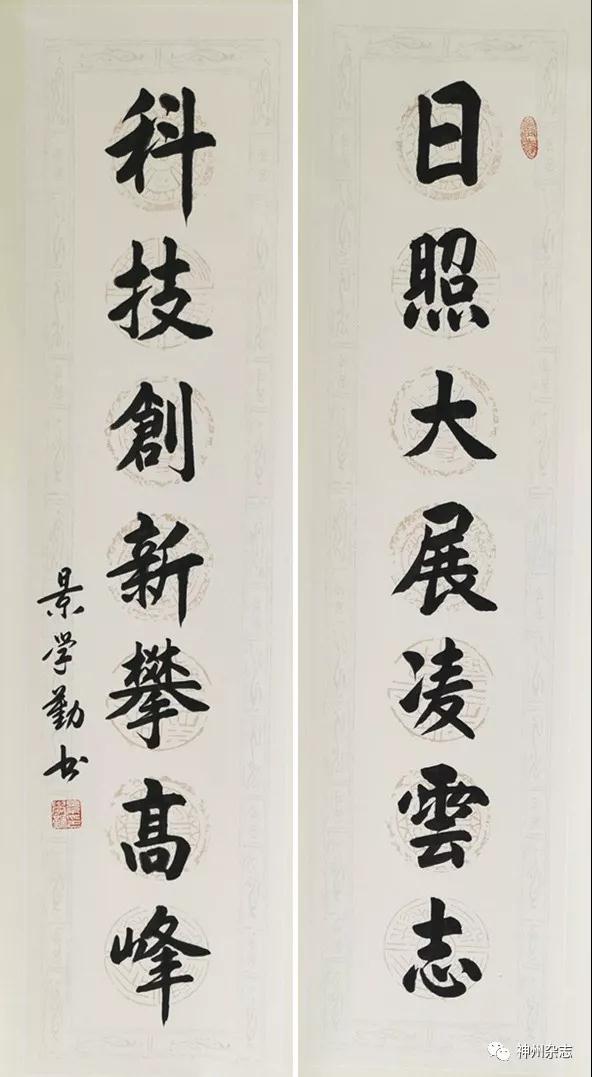 日照大展凌雲志
科技創新攀高峰
景学勤书
神州杂志